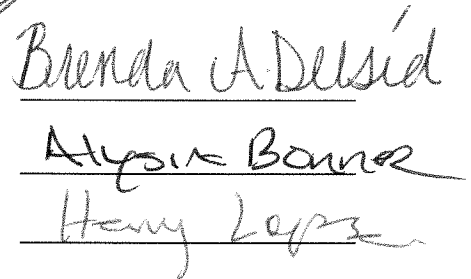 Brenda A Delsid
Alysia Bonner
Henry